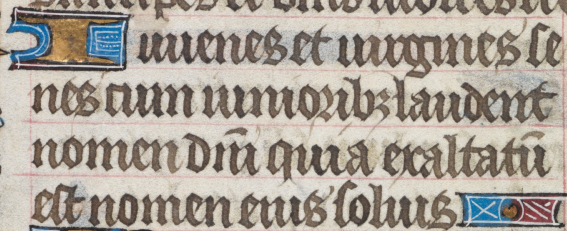 Iuuenes et uirgines se
nes cum iunioribꝫ laudent
nomen dn̄i quia exaltatū
est nomen eius solius